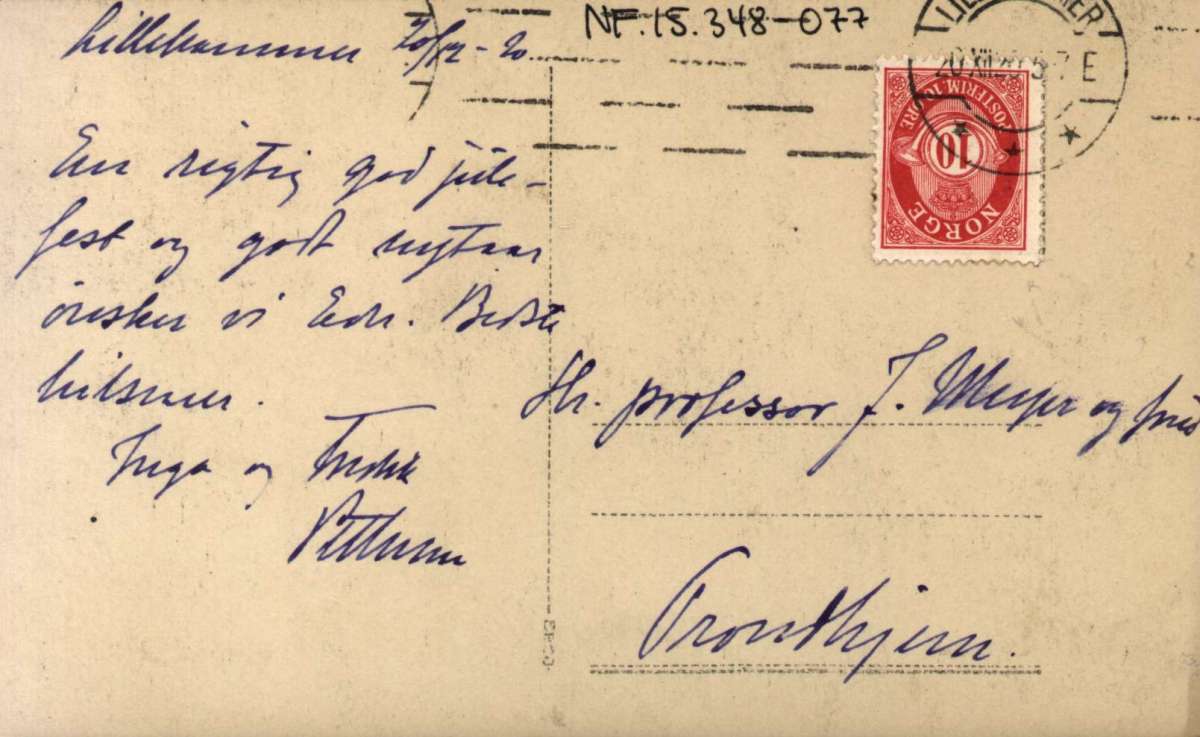 NF.15.348-077
Lillehammer 20/12 - 20.
En rigtig god jule-
fest og godt nytaar
ønsker vi Eder. Bedste
hilsener.
Inga og Fredrik
Hr. professor J. Meyer og frue
Trondhjem.
LILLEHAMMER
20 XII 20 5-7 E
POSTFRIM. 10 ØRE
10
NORGE